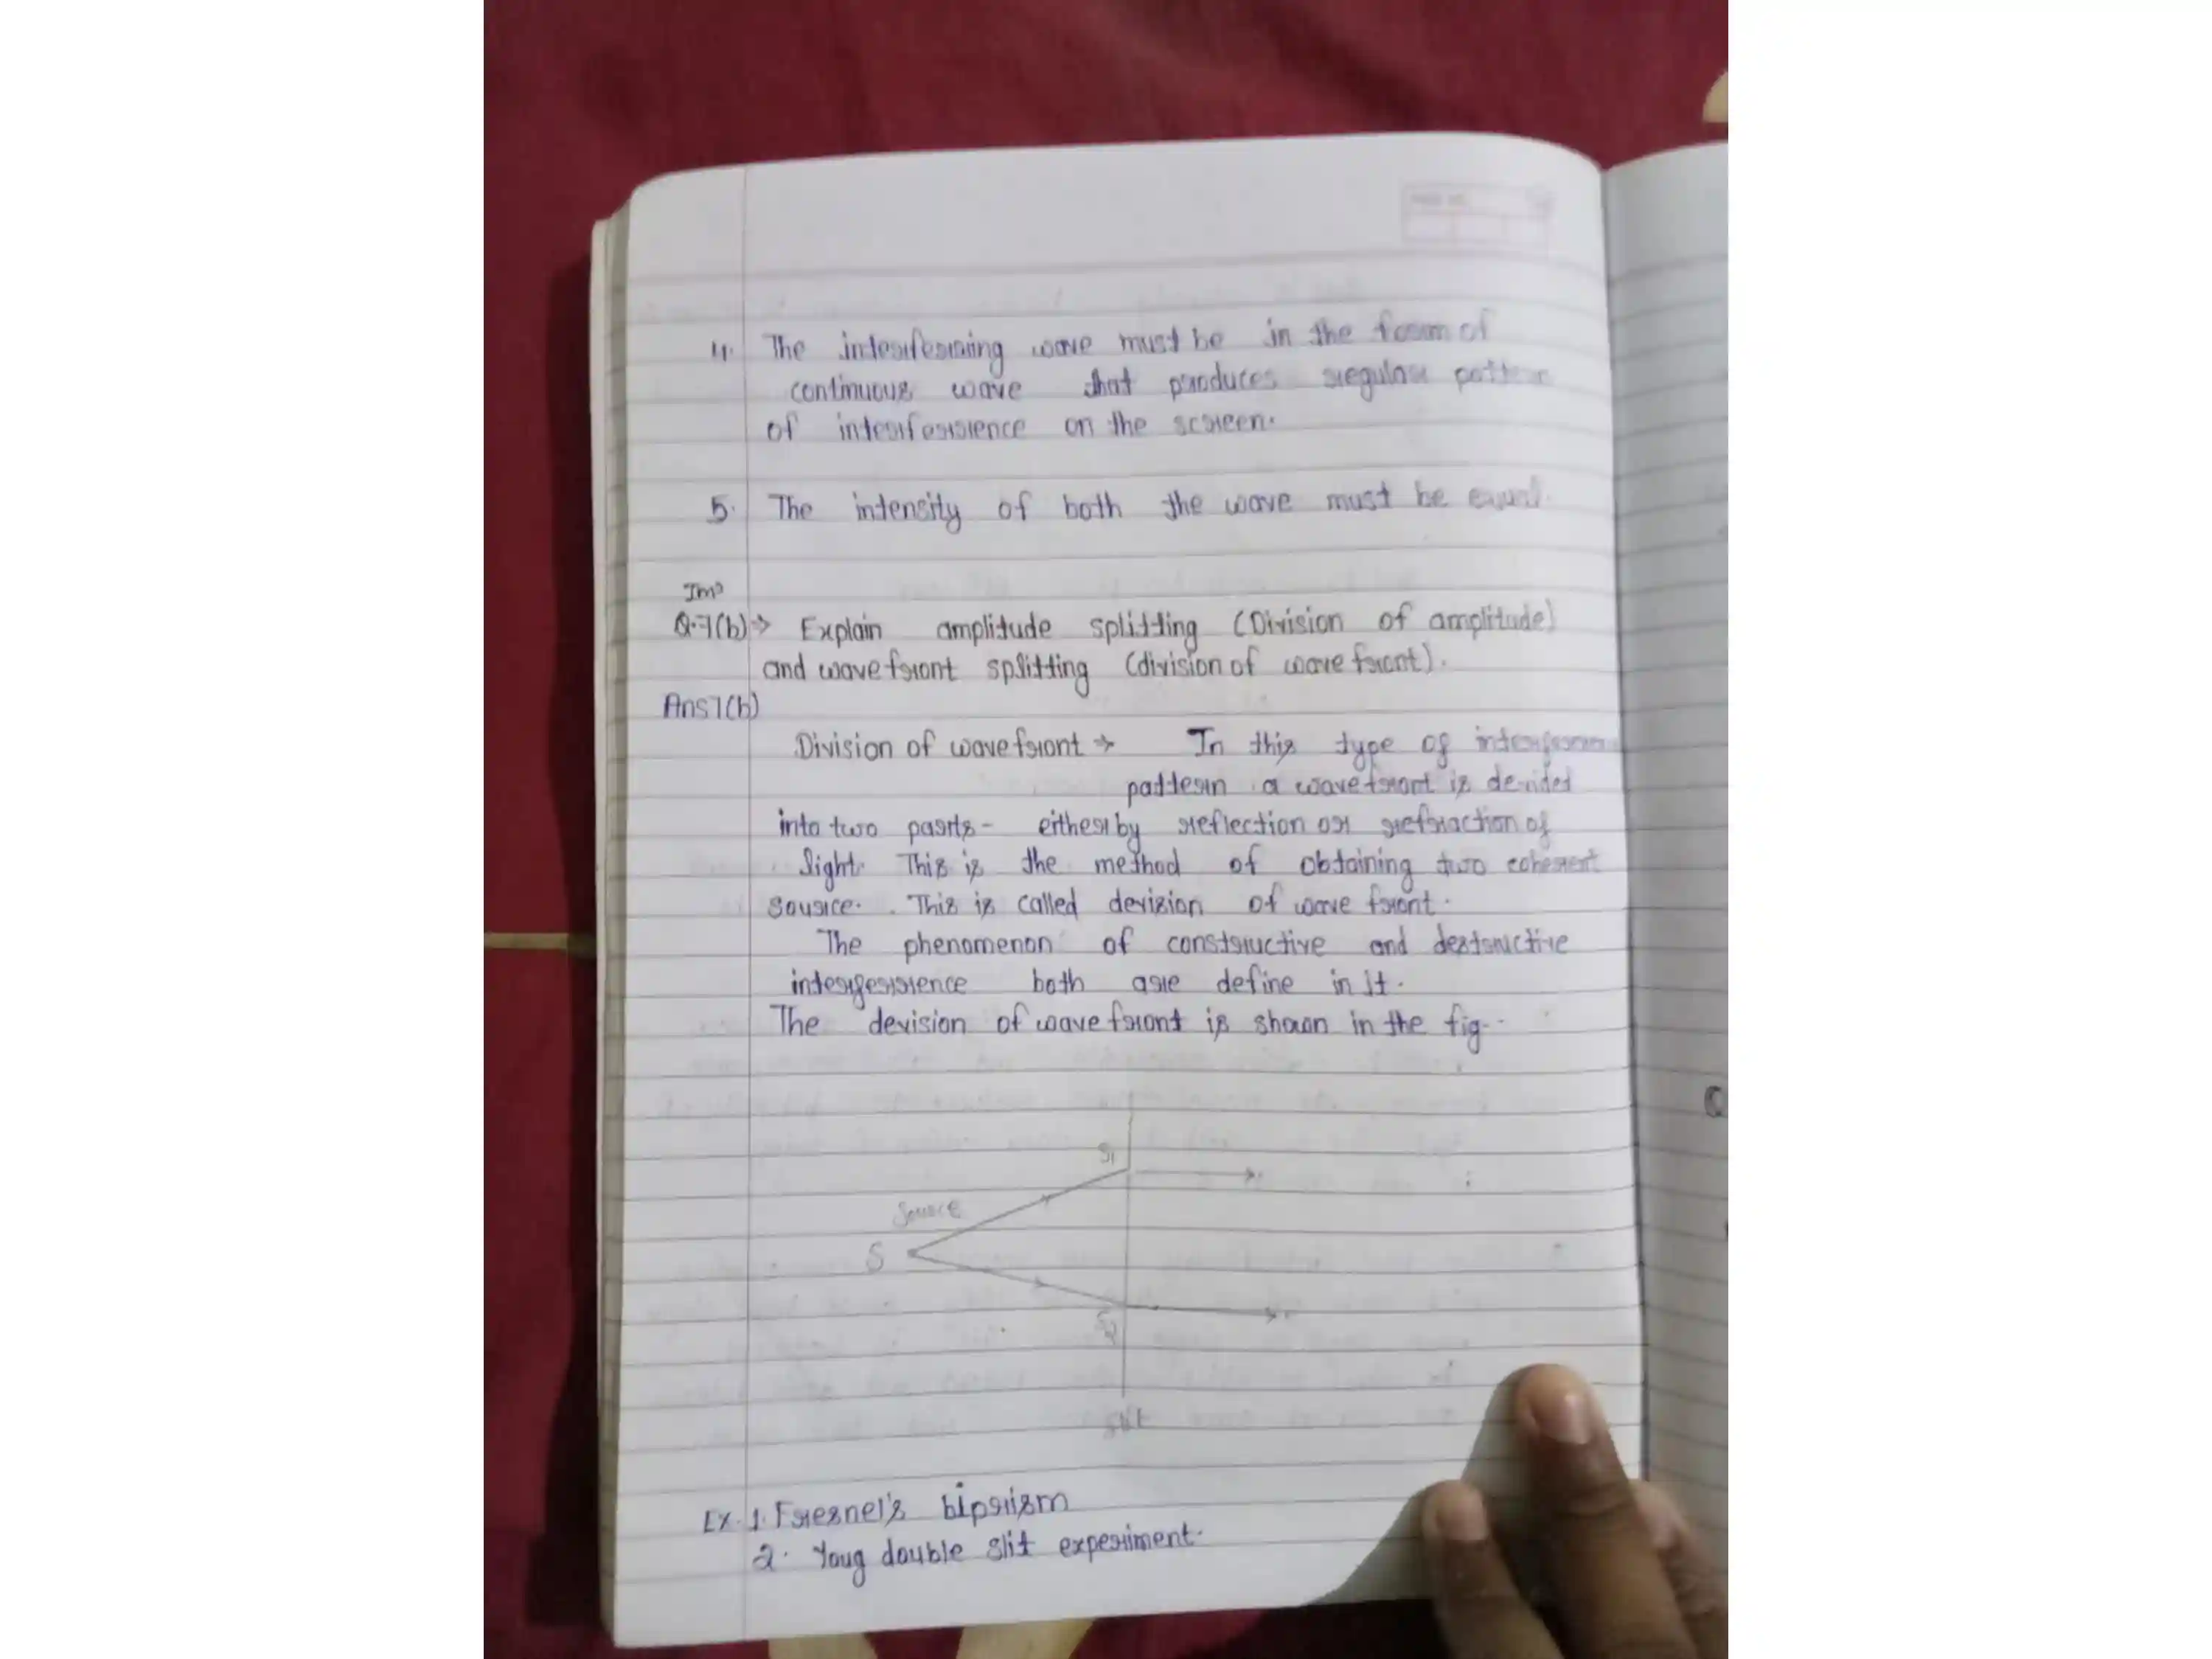 4. The interferring wave must be in the form of
continuous wave that produces regular pattern
of interferrence on the screen.
5. The intensity of both the wave must be equal.
Imp
Q.7(b)→ Explain amplitude splitting (Division of amplitude)
and wave front splitting (division of wave front).
Ans7(b)
Division of wave front → In this type of interference
pattern a wave front is devided
into two parts - either by reflection or refraction of
light. This is the method of obtaining two coherent
source. This is called devision of wave front.
The phenomenon of constructive and destructive
interferrence both are define in it.
The devision of wave front is shown in the fig-
S1
Source
S
S2
slit
Ex. 1. Fresnel's biprism
2. Youg double slit experiment.